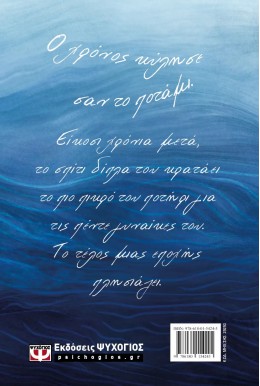 Ο χρόνος κύλησε
σαν το ποτάμι.
Είκοσι χρόνια μετά,
το σπίτι δίπλα του κρατάει
το πιο πικρό του ποτήρι για
τις πέντε γυναίκες του.
Το τέλος μιας εποχής
πλησιάζει.
Εκδόσεις ΨΥΧΟΓΙΟΣ
psichogios.gr